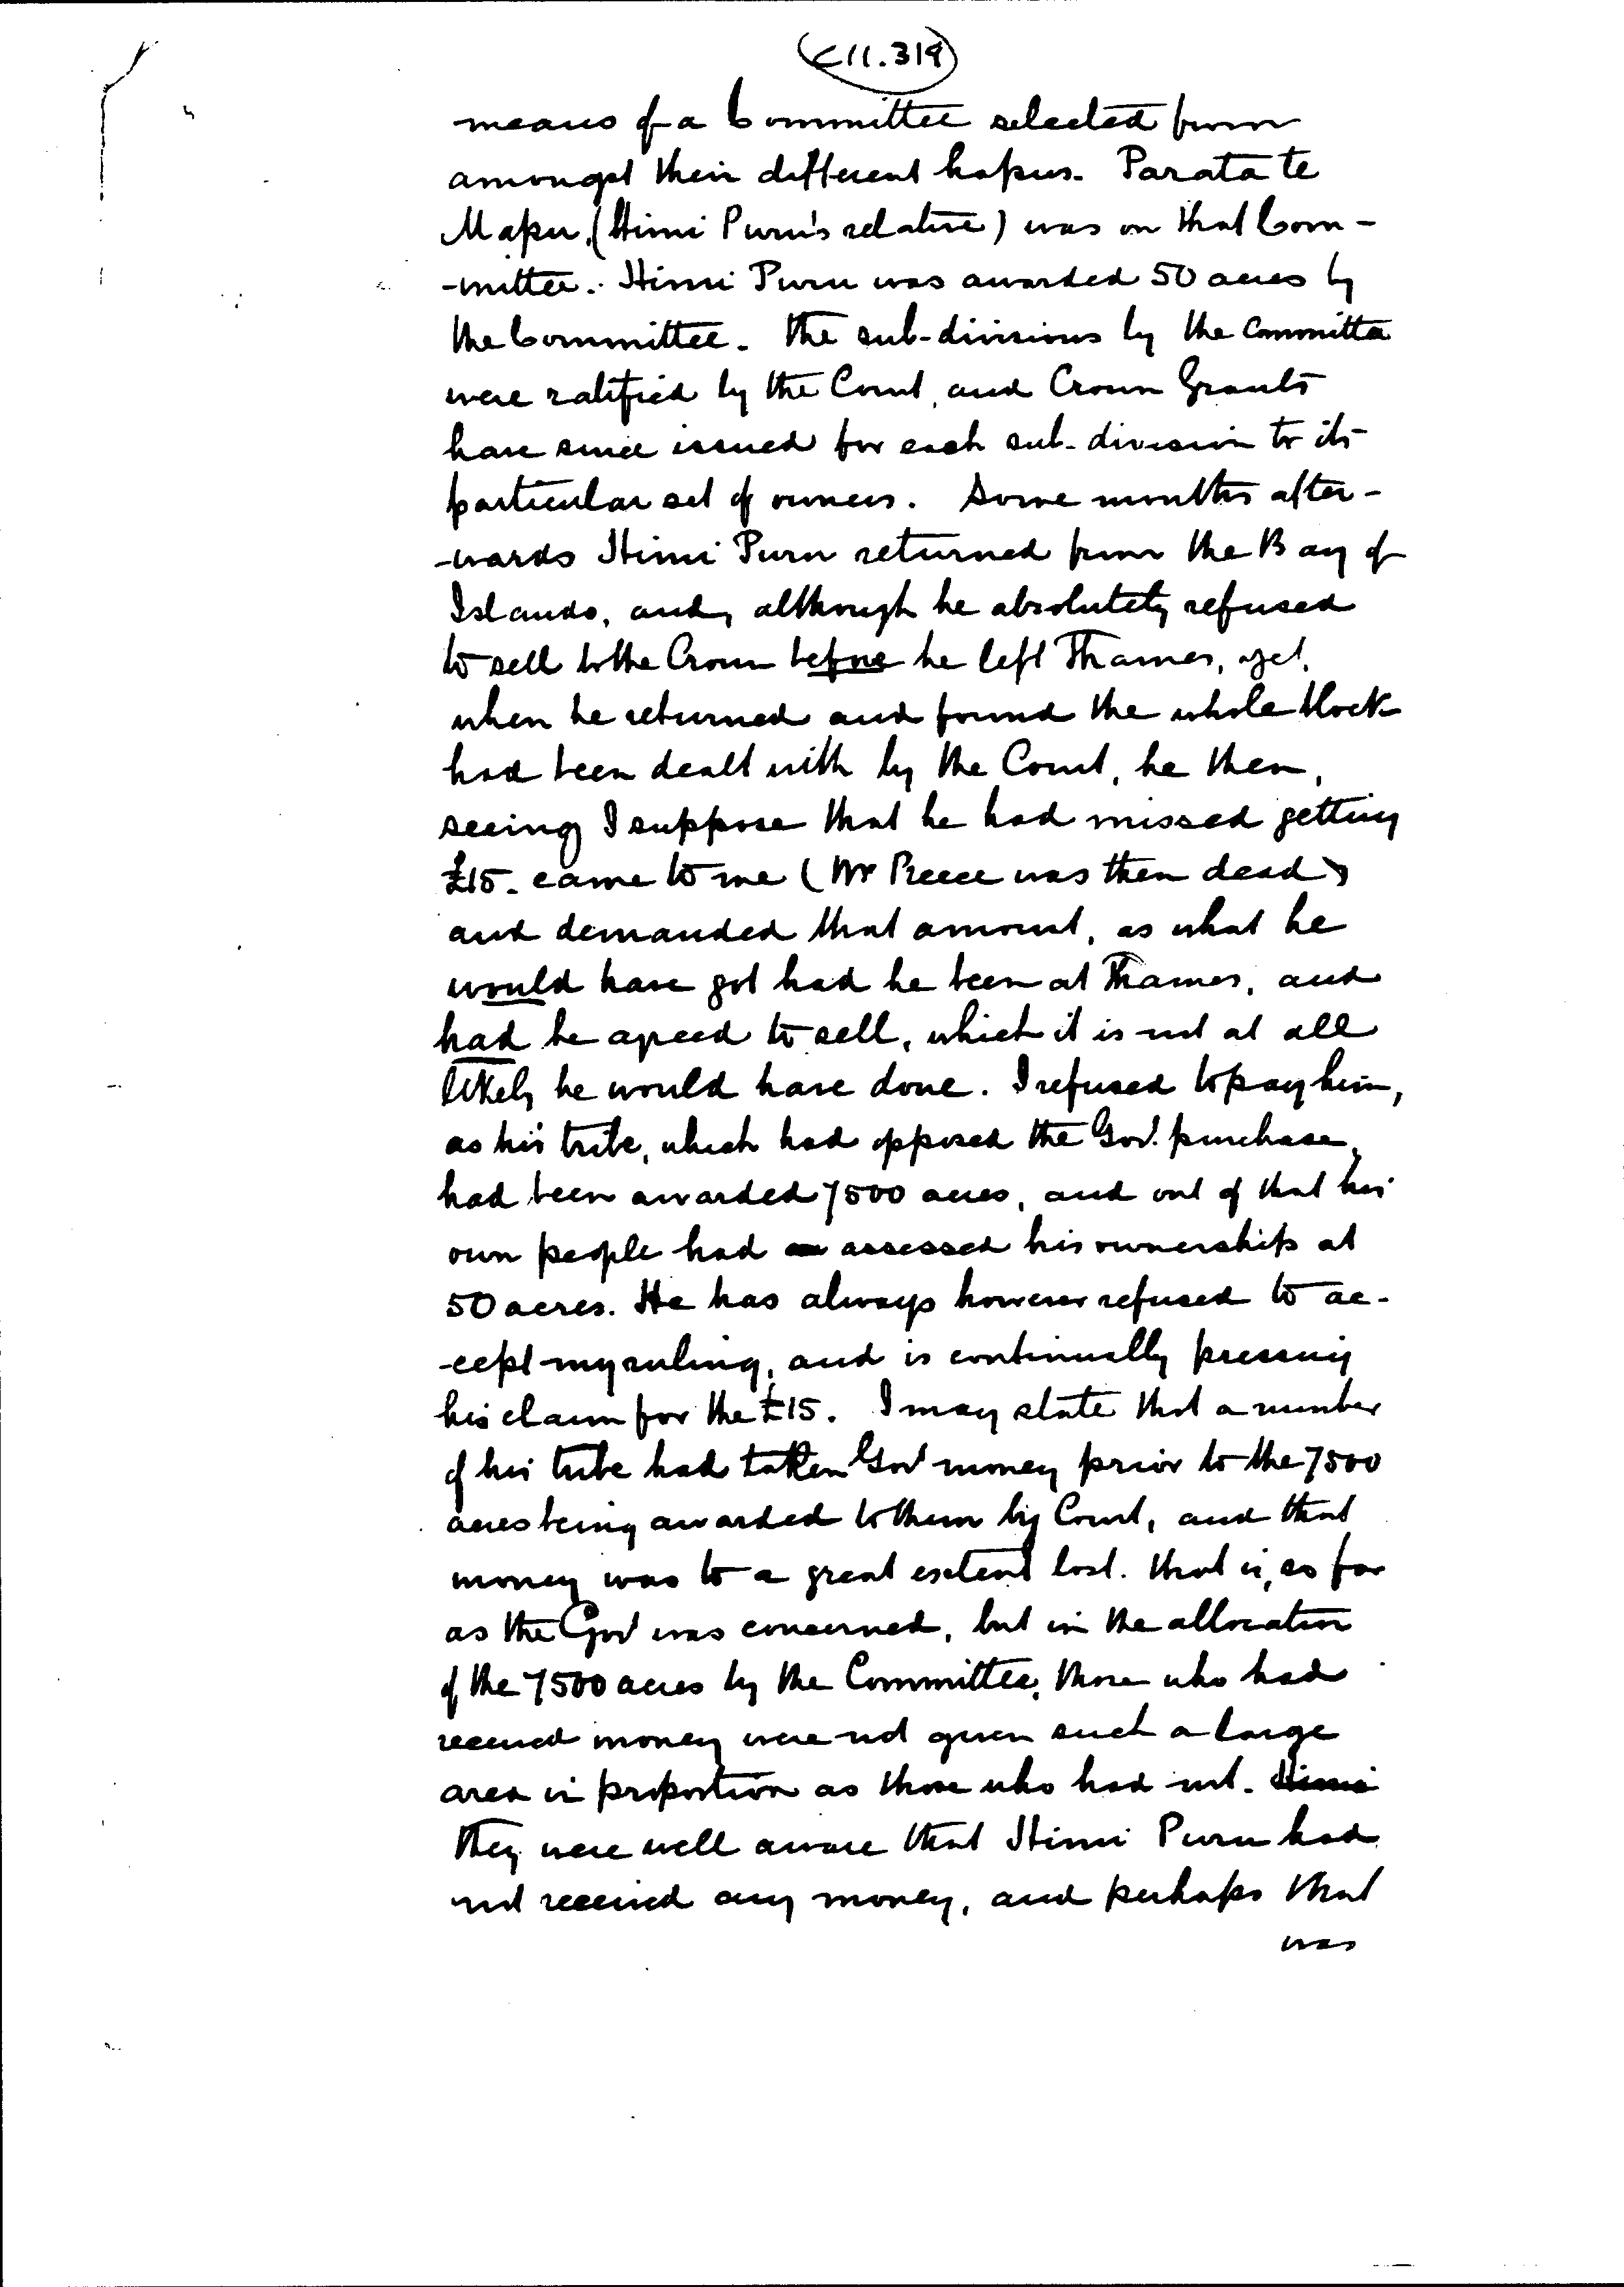 C11.319
means of a Committee selected from
amongst their different hapus. Parata te
Mapu, (Himi Puru's relative) was on that Com-
-mittee. Himi Puru was awarded 50 acres by
the Committee. The sub-divisions by the Committee
were ratified by the Court, and Crown Grants
have since issued for each sub-division to its
particular set of owners. Some months after-
-wards Himi Puru returned from the Bay of
Islands, and, although he absolutely refused
to sell to the Crown before he left Thames, yet,
when he returned and found the whole block
had been dealt with by the Court, he then,
seeing I suppose that he had missed getting
£15. came to me (Mr Preece was then dead)
and demanded that amount, as what he
would have got had he been at Thames, and
had he agreed to sell, which it is not at all
likely he would have done. I refused to pay him,
as his tribe, which had opposed the Gov. purchase,
had been awarded 7500 acres, and out of that his
own people had assessed his ownership at
50 acres. He has always however refused to ac-
-cept my ruling, and is continually pressing
his claim for the £15. I may state that a number
of his tribe had taken Gov money prior to the 7500
acres being awarded to them by Court, and that
money was to a great extent lost. that is, as far
as the Gov was concerned, but in the allocation
of the 7500 acres by the Committee, those who had
received money were not given such a large
area in proportion as those who had not. Himi
They were well aware that Himi Puru had
not received any money, and perhaps that
was